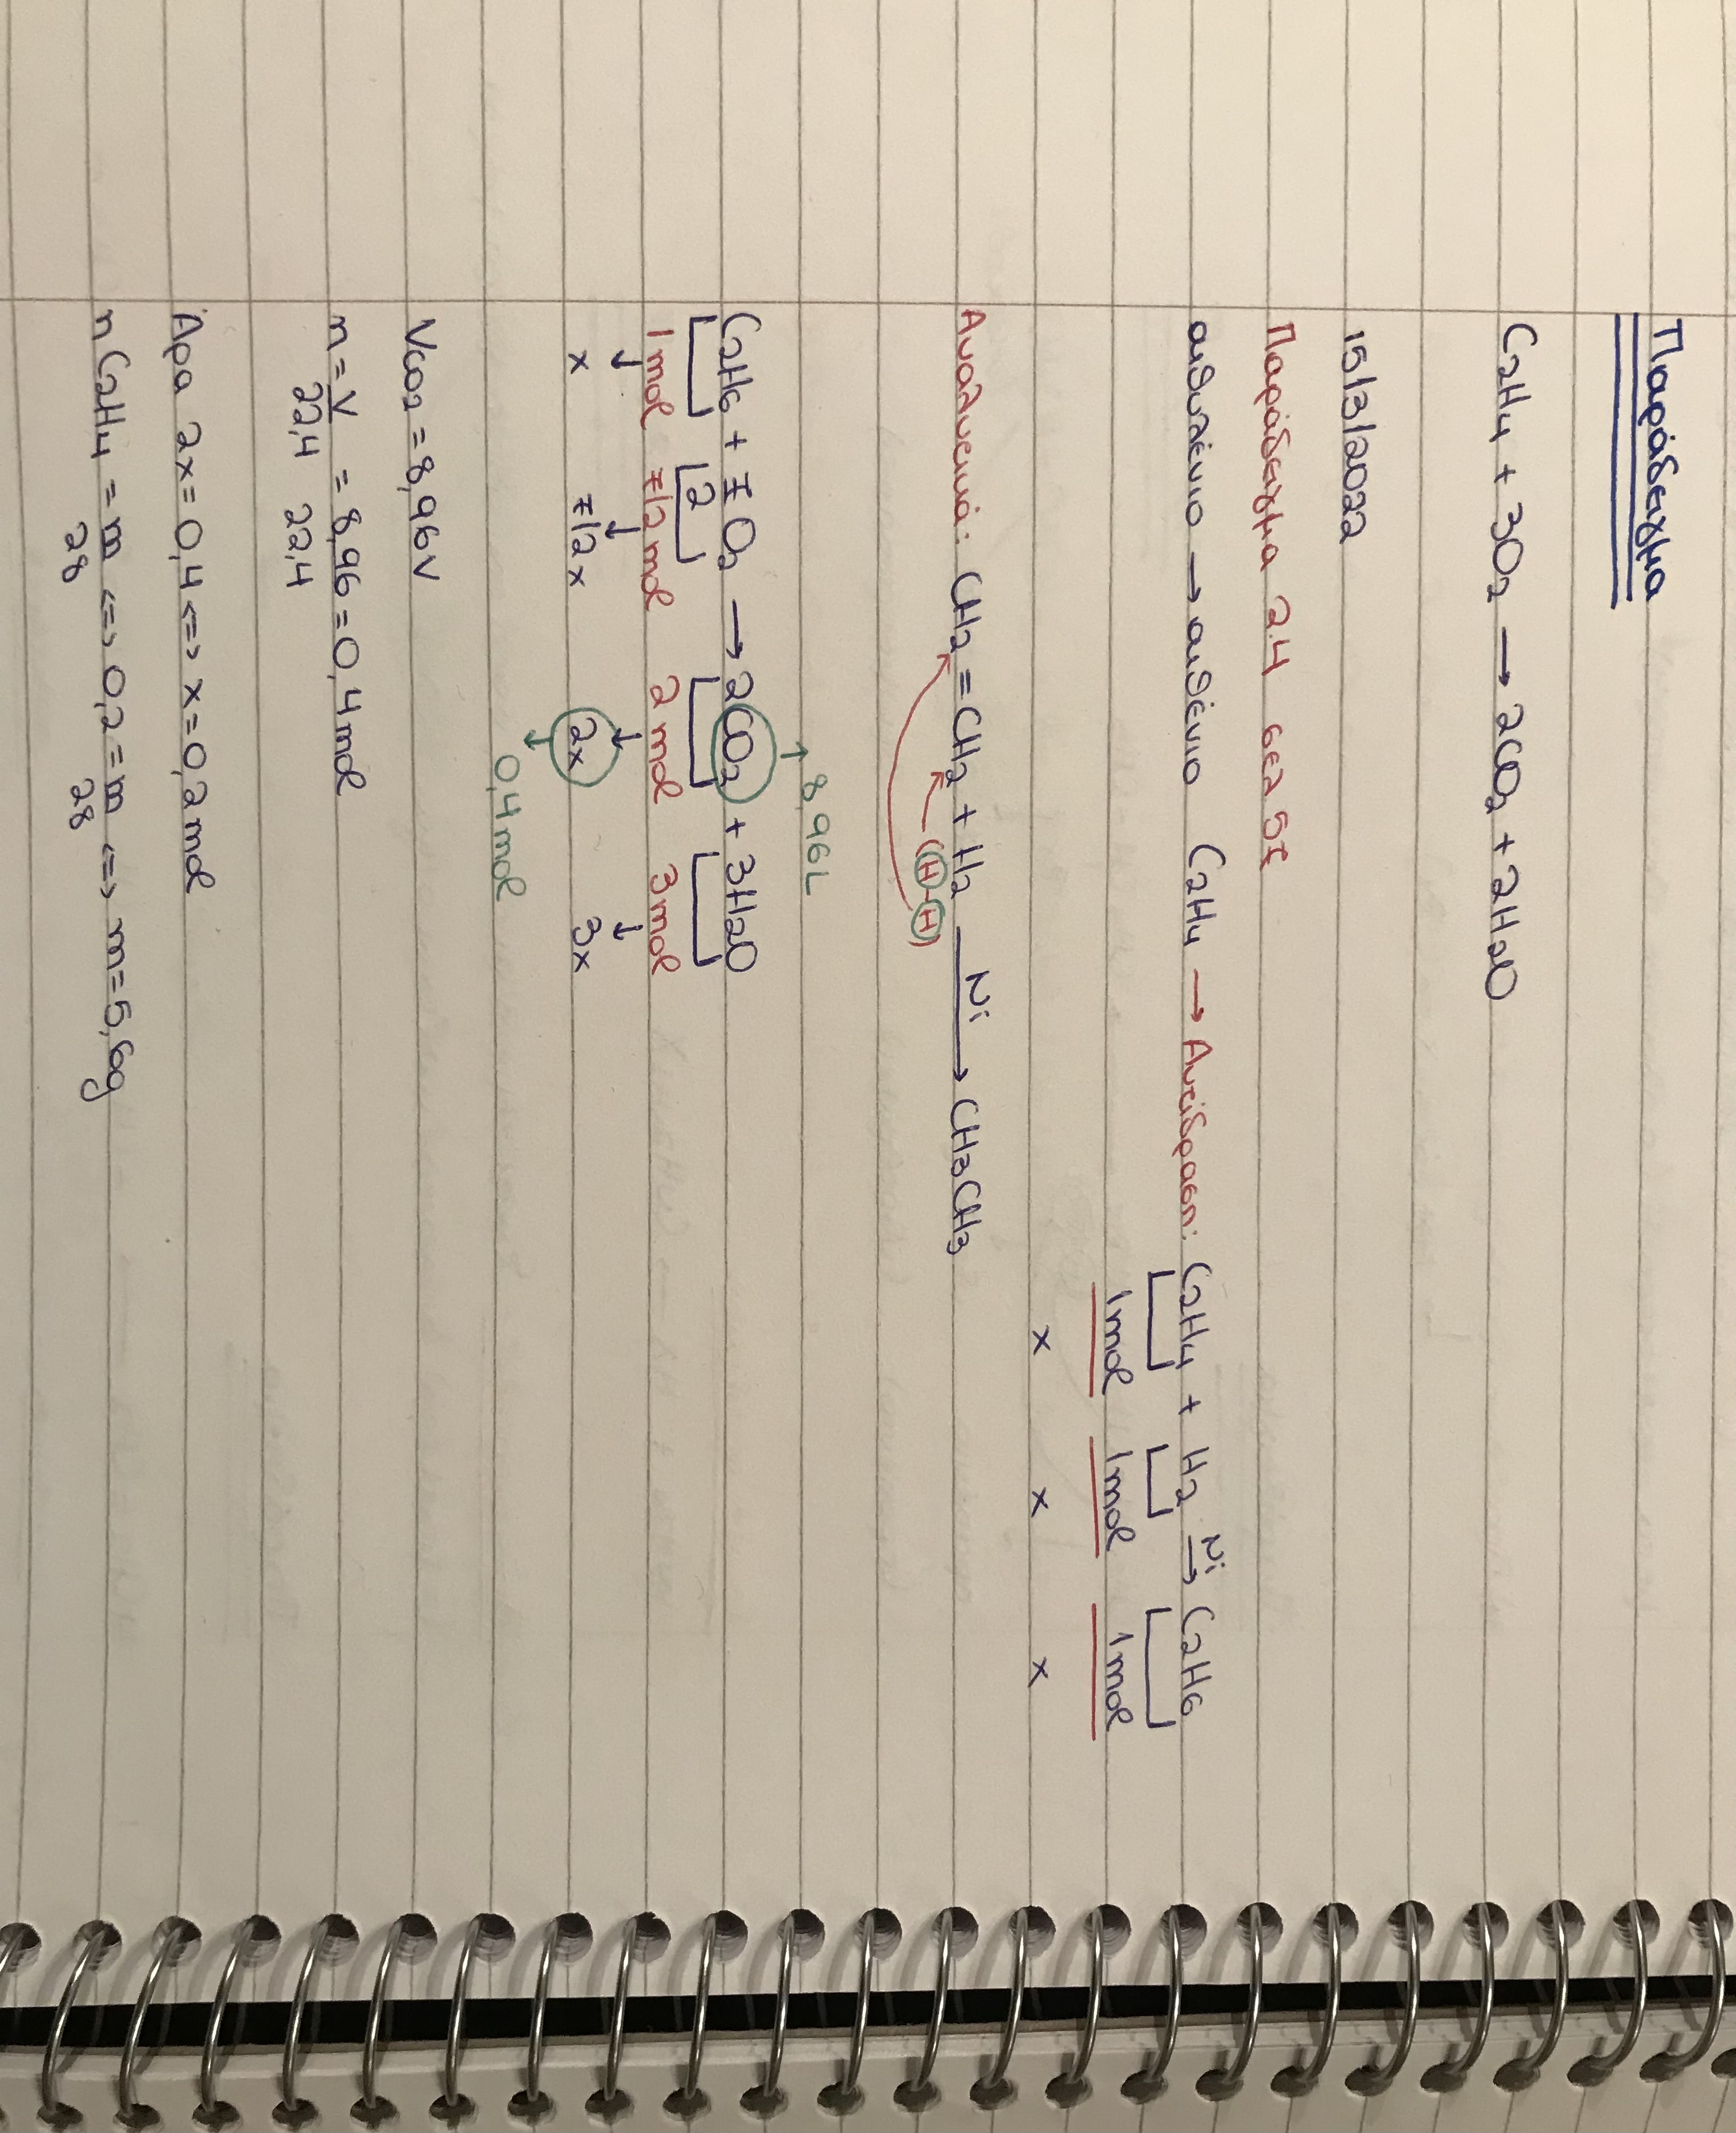 Παράδειγμα
C₂H₄ + 3O₂ → 2CO₂ + 2H₂O
15/3/2022
Παράδειγμα 2.4 σελ 57
αιθυλένιο → αιθένιο C₂H₄ → Αντίδραση: C₂H₄ + H₂ Ni→ C₂H₆
1mol 1mol 1mol
x x x
Αναλυτικά: CH₂=CH₂ + H₂ Ni→ CH₃CH₃
(H-H)
8,96L
C₂H₆ + 7/2 O₂ → 2CO₂ + 3H₂O
1mol 7/2mol 2mol 3mol
x 7/2x 2x 3x
0,4mol
Vco₂ = 8,96V
n = V/22,4 = 8,96/22,4 = 0,4mol
Άρα 2x = 0,4 <=> x = 0,2mol
n C₂H₄ = m/28 <=> 0,2 = m/28 <=> m = 5,6g